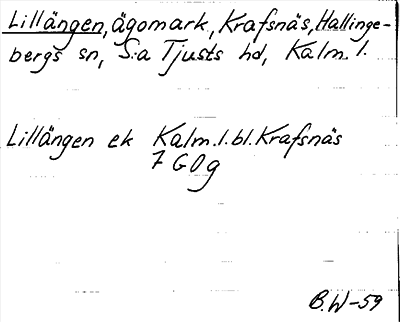 Lillängen, ägomark, Krafsnäs, Hallinge-
bergs sn, S:a Tjusts hd, Kalm. l.
Lillängen ek Kalm.l.bl.Krafsnäs
7 G0g
B.W-59